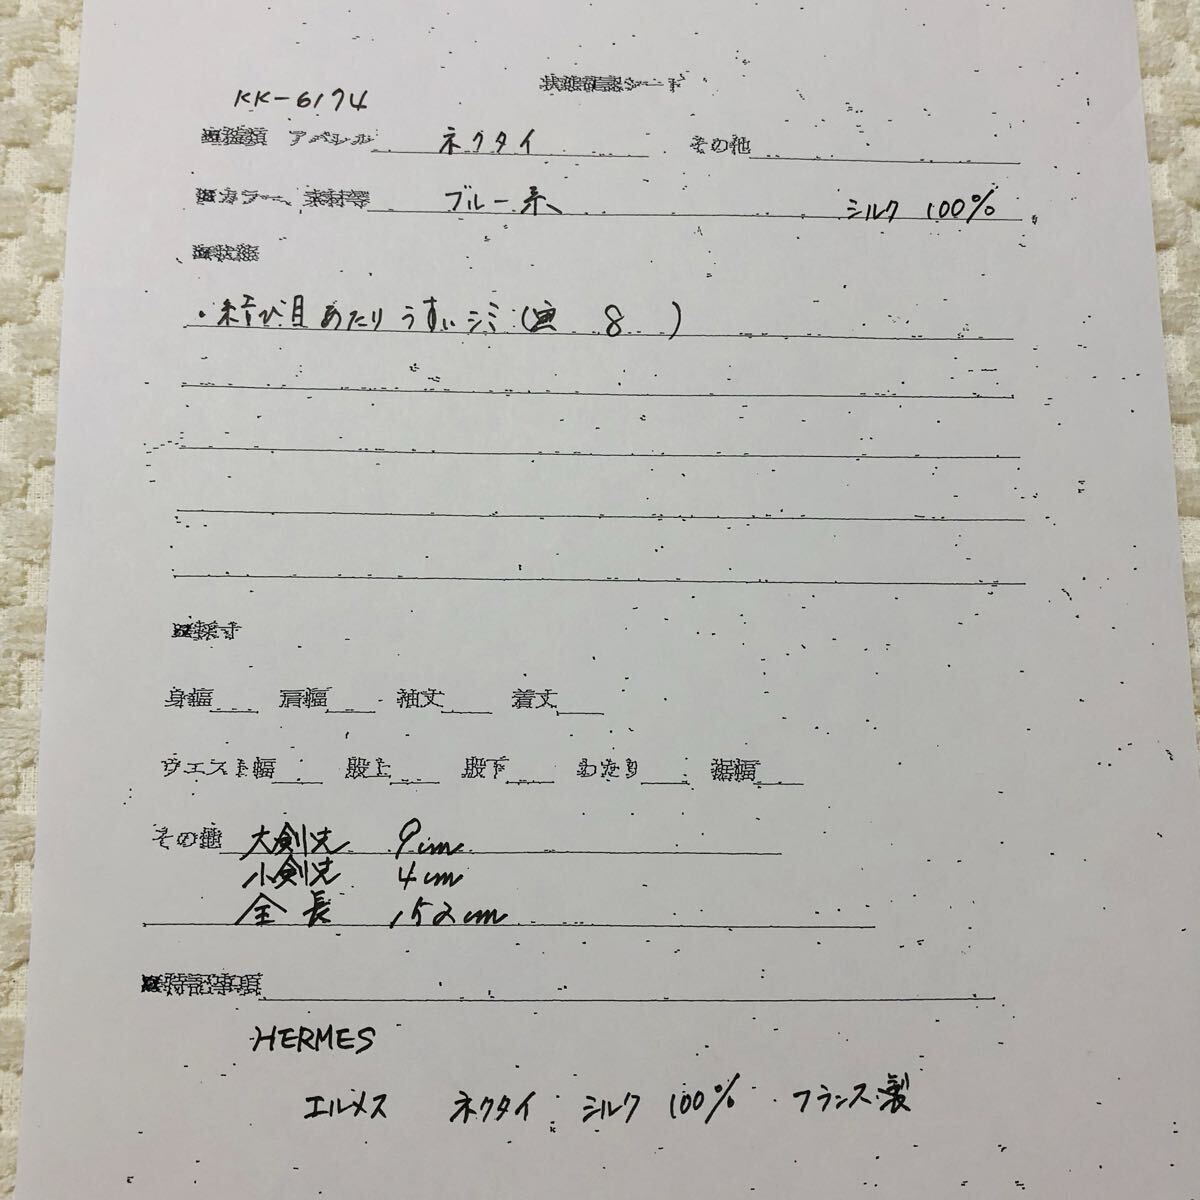 状態確認シート
KK-6174
■種類 アパレル ネクタイ その他
■カラー、素材等 ブルー系 シルク 100%
■状態
・結び目あたり うすいシミ(画 8 )
■採寸
身幅 肩幅 袖丈 着丈
ウエスト幅 股上 股下 わたり 裾幅
その他 大剣先 9cm
小剣先 4cm
全長 152cm
■特記事項
HERMES
エルメス ネクタイ シルク 100% フランス製